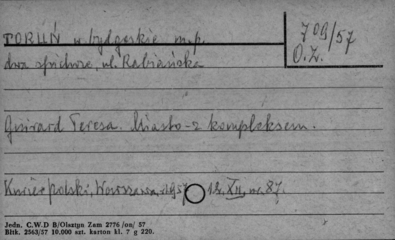 TORUŃ w. bydgoskie m.p.
709/57
O.Z.
dwa spichrze, ul. Rabiańska
Guirard Teresa. Miasto-z kompleksem.
Kurier Polski, Warszawa, 1957 12.XII, nr. 87.
Jedn. C.W.D B/Olsztyn Zam 2776 /on/ 57
Bltk. 2563/57 10.000 szt. karton kl. 7 g 220.